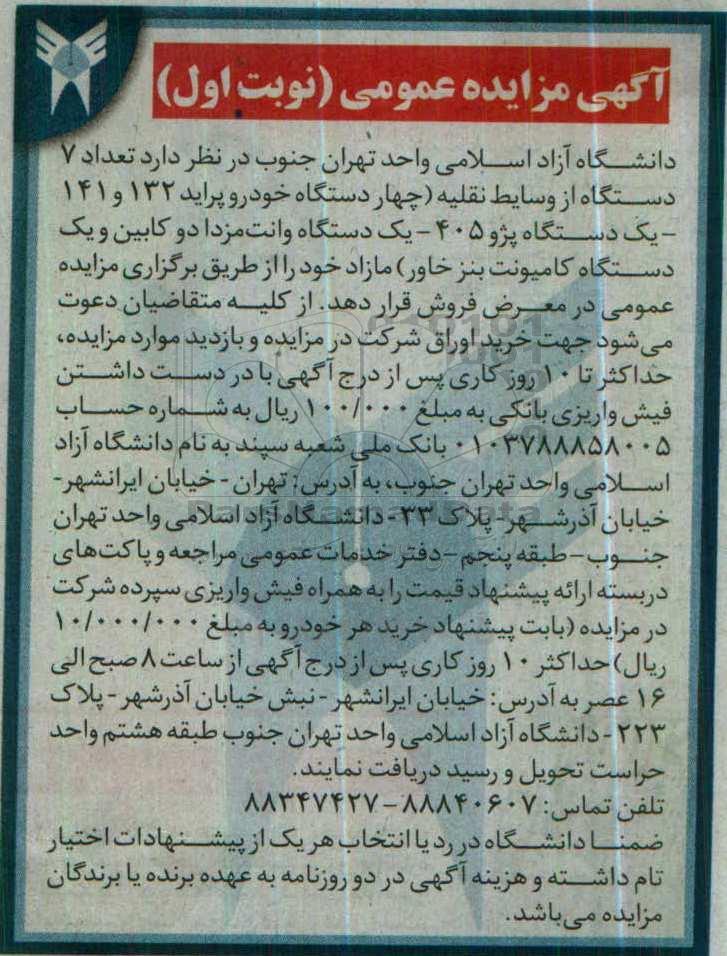 آگهی مزایده عمومی (نوبت اول)
دانشگاه آزاد اسلامی واحد تهران جنوب در نظر دارد تعداد ۷
دستگاه از وسایط نقلیه (چهار دستگاه خودرو پراید ۱۳۲ و ۱۴۱
- یک دستگاه پژو ۴۰۵ - یک دستگاه وانت مزدا دو کابین و یک
دستگاه کامیونت بنز خاور) مازاد خود را از طریق برگزاری مزایده
عمومی در معرض فروش قرار دهد. از کلیه متقاضیان دعوت
می‌شود جهت خرید اوراق شرکت در مزایده و بازدید موارد مزایده،
حداکثر تا ۱۰ روز کاری پس از درج آگهی با در دست داشتن
فیش واریزی بانکی به مبلغ ۱۰۰/۰۰۰ ریال به شماره حساب
۰۱۰۳۷۸۸۸۵۸۰۰۵ بانک ملی شعبه سپند به نام دانشگاه آزاد
اسلامی واحد تهران جنوب، به آدرس: تهران - خیابان ایرانشهر-
خیابان آذرشهر- پلاک ۳۳- دانشگاه آزاد اسلامی واحد تهران
جنوب - طبقه پنجم - دفتر خدمات عمومی مراجعه و پاکت‌های
دربسته ارائه پیشنهاد قیمت را به همراه فیش واریزی سپرده شرکت
در مزایده (بابت پیشنهاد خرید هر خودرو به مبلغ ۱۰/۰۰۰/۰۰۰
ریال) حداکثر ۱۰ روز کاری پس از درج آگهی از ساعت ۸ صبح الی
۱۶ عصر به آدرس: خیابان ایرانشهر - نبش خیابان آذرشهر - پلاک
۲۲۳ - دانشگاه آزاد اسلامی واحد تهران جنوب طبقه هشتم واحد
حراست تحویل و رسید دریافت نمایند.
تلفن تماس: ۸۸۸۴۰۶۰۷ - ۸۸۳۴۷۴۲۷
ضمنا دانشگاه در رد یا انتخاب هر یک از پیشنهادات اختیار
تام داشته و هزینه آگهی در دو روزنامه به عهده برنده یا برندگان
مزایده می‌باشد.